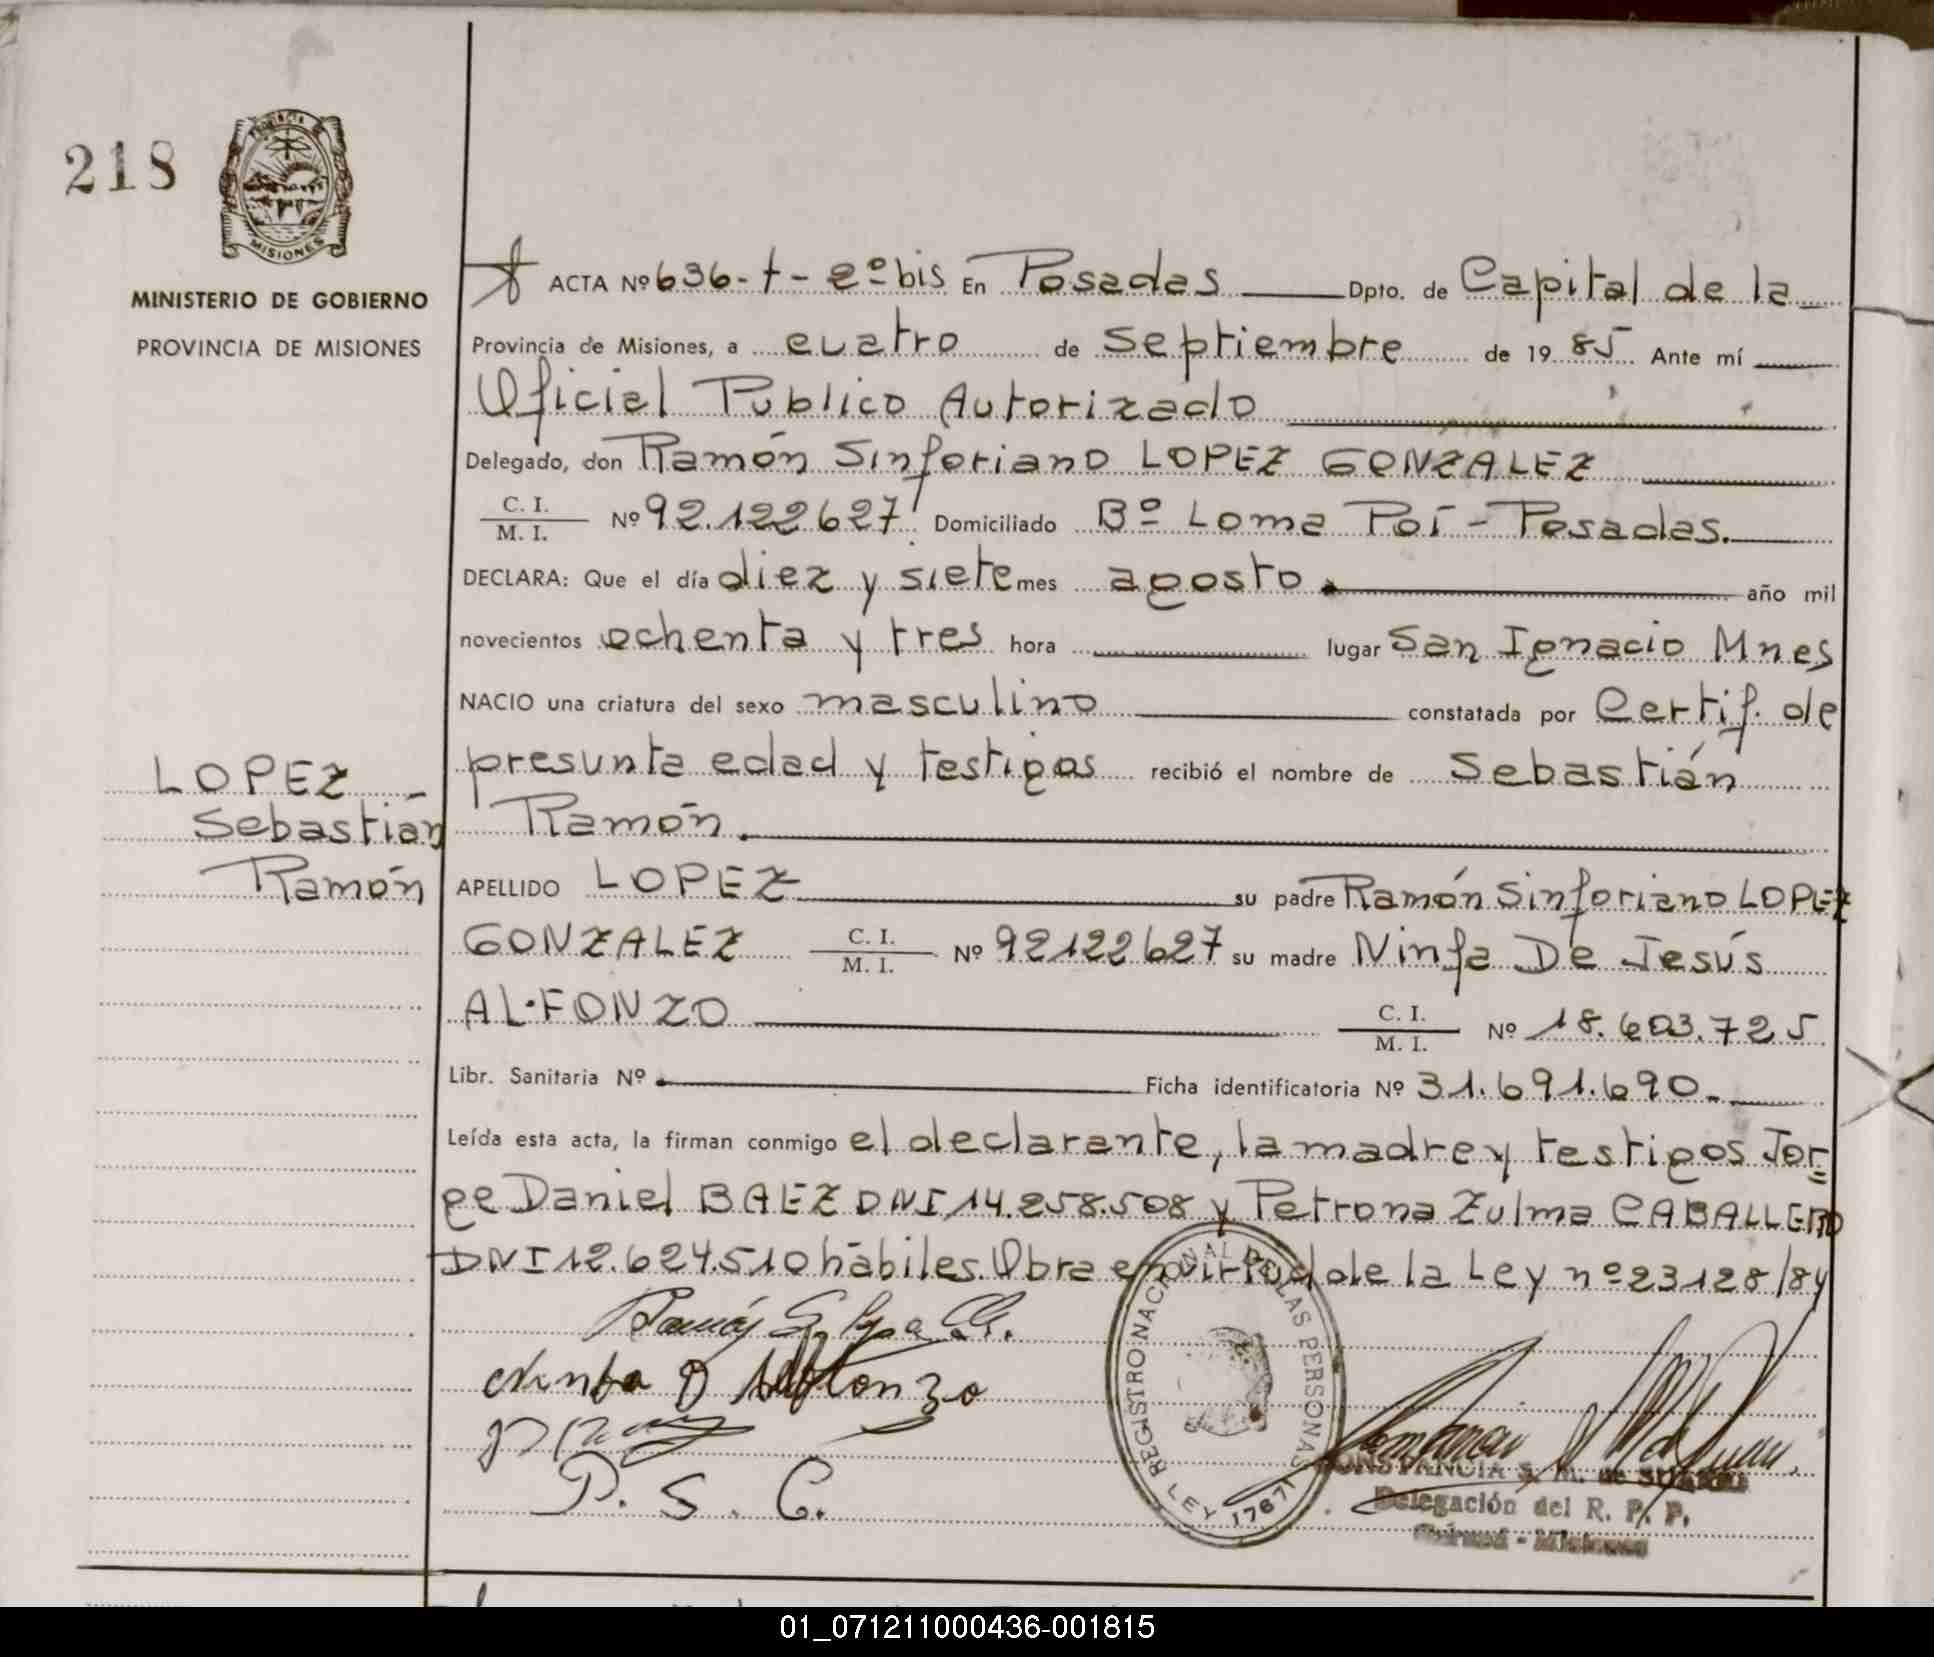 218
PROVINCIA DE
MISIONES
MINISTERIO DE GOBIERNO
PROVINCIA DE MISIONES
ACTA Nº 636-t-2º bis En Posadas Dpto. de Capital de la
Provincia de Misiones, a cuatro de Septiembre de 1985 Ante mí
Oficial Publico Autorizado
Delegado, don Ramón Sinforiano LOPEZ GONZALEZ
C. I.
M. I.
Nº 92.122627 Domiciliado Bº Loma Poí - Posadas.
DECLARA: Que el día diez y siete mes agosto año mil
novecientos ochenta y tres hora lugar San Ignacio Mnes
NACIO una criatura del sexo masculino constatada por Certif. de
presunta edad y testigos recibió el nombre de Sebastián
Ramón.
LOPEZ
Sebastián
Ramón
APELLIDO LOPEZ su padre Ramón Sinforiano LOPEZ
GONZALEZ C. I.
M. I.
Nº 92122627 su madre Ninfa De Jesús
AL·FONZO C. I.
M. I.
Nº 18.603.725
Libr. Sanitaria Nº Ficha identificatoria Nº 31.691.690.-
Leída esta acta, la firman conmigo el declarante, la madre y testigos Jor=
ge Daniel BAEZ DNI 14.258.508 y Petrona Zulma CABALLERO
DNI 12.624.510 hábiles. Obra en virtud de la Ley nº 23128/84
Ninfa D Alfonzo
P. S. C.
REGISTRO NACIONAL DE LAS PERSONAS
LEY 17671
CONSTANCIA S. M. de
Delegación del R. P. P.
- Misiones
01_071211000436-001815